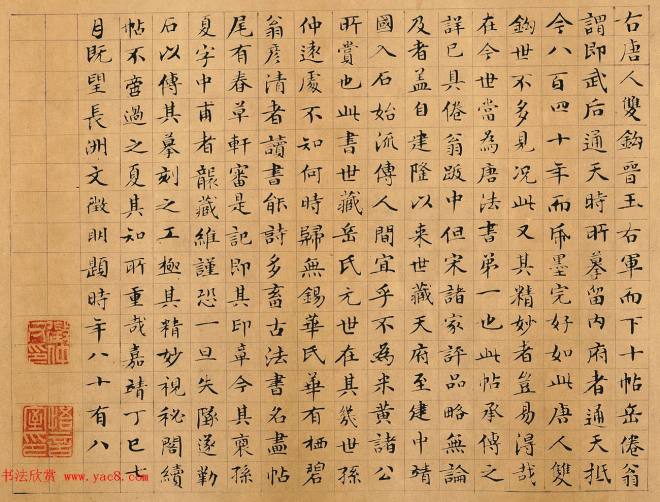 右唐人雙鈎晉王右軍而下十帖岳倦翁
謂即武后通天時所摹留内府者通天抵
今八百四十年而帋墨完好如此唐人雙
鈎世不多見况此又其精妙者豈易得哉
在今世當為唐法書第一也此帖承傳之
詳已具倦翁跋中但宋諸家評品略無論
及者盖自建隆以来世藏天府至建中靖
國入石始流傳人間宜乎不為米黄諸公
所賞也此書世藏岳氏元世在其幾世孫
仲遠處不知何時歸無錫華氏華有栖碧
翁彦清者讀書能詩多畜古法書名畫帖
尾有春草軒審是記即其印章今其裔孫
夏字中甫者襲藏維謹恐一旦失墜遂勒
石以傳其摹刻之工極其精妙視秘閣續
帖不啻過之夏其知所重哉嘉靖丁巳六
月既望長洲文徵明題時年八十有八
书法欣赏 www.yac8.com